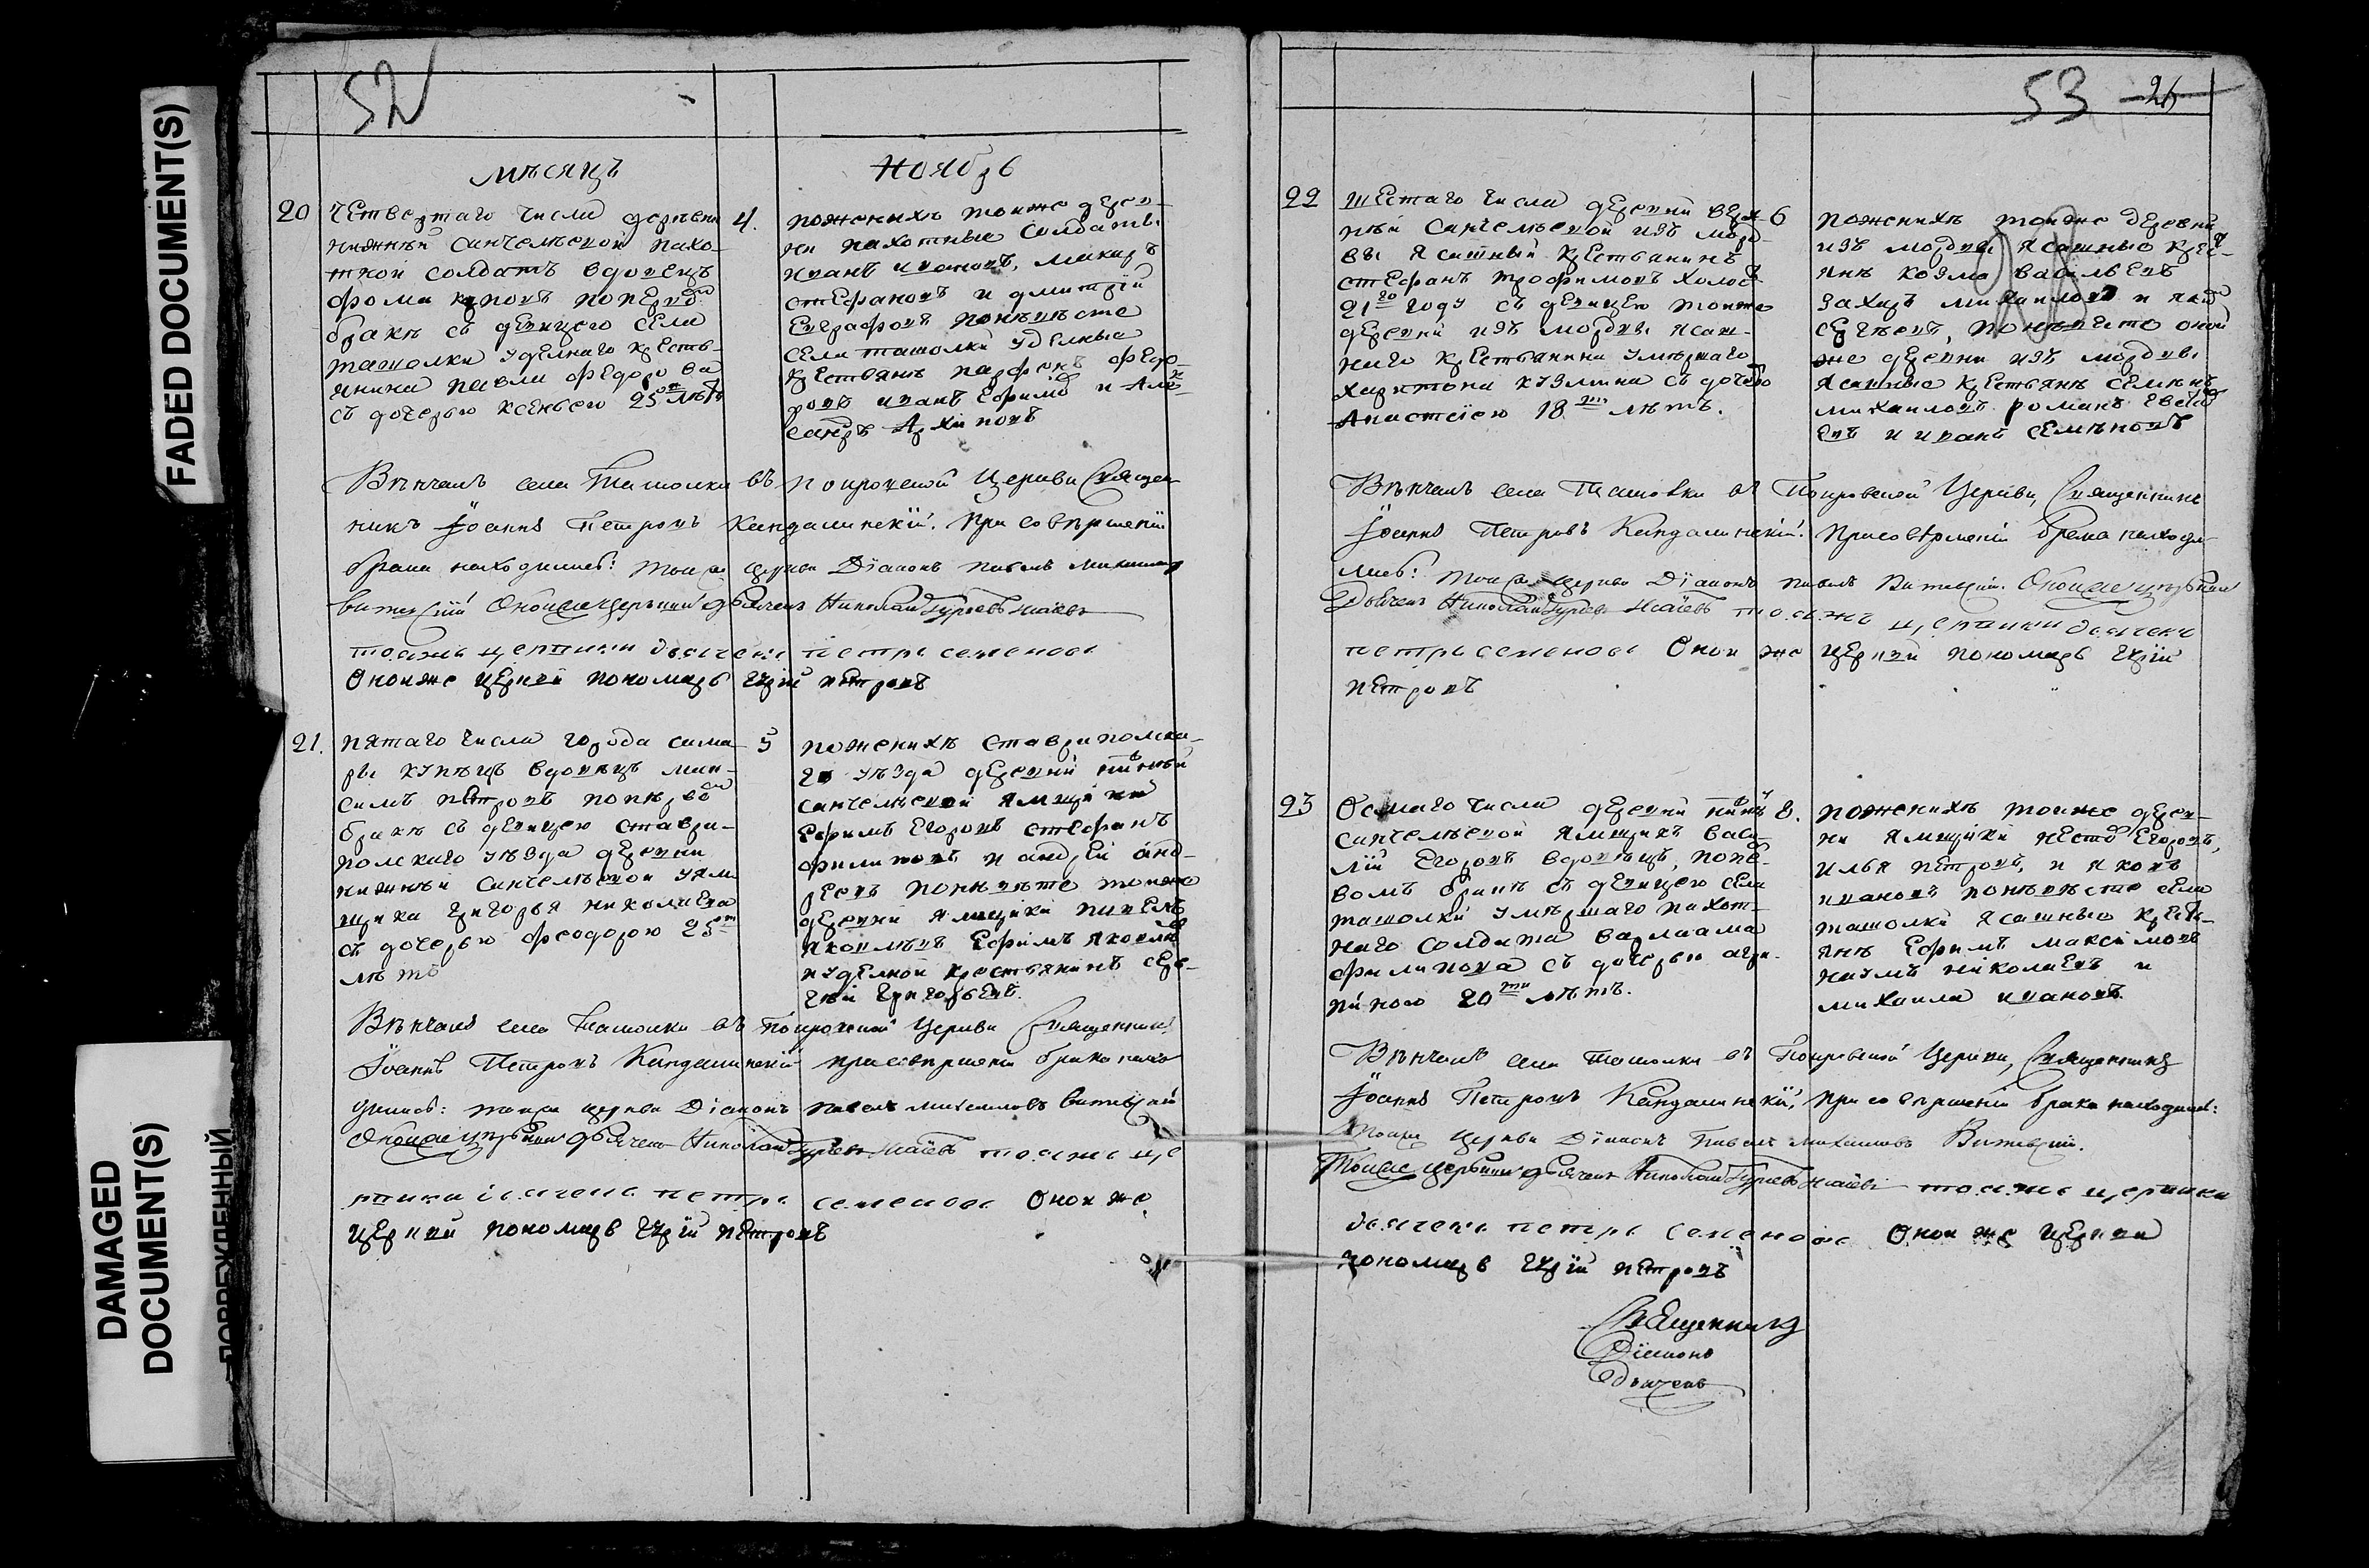 FADED DOCUMENT(S)
DAMAGED
DOCUMENT(S)
ПОВРЕЖДЕННЫЙ
52
мѣсяцъ Ноябрь
20 четвертаго числа деревни 4.
нижнѣй санчелѣевой пахо-
тной солдатъ вдовецъ
фома поперво
бракѣ съ девицею села
ташолки уделнаго кресть-
янина павла федорова
съ дочерью ксеньею 25 лѣтъ
поженихѣ тоиже дерев-
ни пахотные солдаты
иванъ ивановъ, макаръ
стефановъ и дмитрій
Евграфовъ поневѣсте
села ташолки уделные
крестьянъ парфенъ федо-
ровъ иванъ Ефимовъ и Але-
сандръ Архиповъ
Вѣнчалъ села Ташолки въ покровской Церкви Священ-
никъ Іоаннъ Петровъ Кандалинскій. При совѣршеніи
брака находились: тоя же церкви Діаконъ павелъ михаиловъ
витевскій Оной же церкви дьячекъ Николай Гурьевъ Исаевъ
тоя же церкви дьячекъ петръ семеновъ
Оной же церкви пономарь петровъ
21. пятаго числа города сама- 5
ры купецъ вдовецъ мак-
симъ петровъ поперво
бракѣ съ девицею ставро-
полскаго уѣзда деревни
нижнѣй санчелѣевой ям-
щика григорья николаева
съ дочерью феодорою 25
лѣтъ
поженихѣ ставрополска-
го уѣзда деревни нижнѣй
санчелѣевой ямщики
Ефимъ Егоровъ стефанъ
филиповъ и андрей анд-
реевъ поневѣсте тоиже
деревни ямщики павелъ
яковлевъ Ефимъ яковлевъ
и уделной крестьянинъ сер-
гѣй григорьевъ.
Вѣнчалъ села Ташолки въ Покровской Церкви Священникъ
Іоаннъ Петровъ Кандалинскій при совѣршеніи брака нахо-
дились: тоя же церкви Діаконъ павелъ михаиловъ витевскій
Оной же церкви дьячекъ Николай Гурьевъ Исаевъ тоя же це
ркви дьячекъ петръ семеновъ Оной же
церкви пономарь петровъ
53 26
22 шестаго числа деревни верх 6
нѣй санчелѣевой изъ морд-
вы Ясашный крестьянинъ
стефанъ трофимовъ холос
21го году съ девицею тоиже
деревни изъ мордвы ясаш-
наго крестьянина умершаго
харитона кузмина съ дочерью
Анастсіею 18 лѣтъ.
поженихѣ тоиже деревни
изъ мордвы Ясашные крест-
янъ козма васильевъ
захаръ михаиловъ и
сергѣевъ, поневѣсте оной
же деревни изъ мордвы
Ясашные крестьянъ семенъ
михаиловъ романъ
евъ и иванъ семеновъ
Вѣнчалъ села Ташолки въ Покровской Церкви, Священникъ
Іоаннъ Петровъ Кандалинскій. При совѣршеніи брака находи-
лись: тоя же церкви Діаконъ павелъ Витевскій. Оной же церкви
Дьячекъ Николай Гурьевъ Исаевъ тоя же церкви дьячекъ
петръ семеновъ Оной же церкви пономарь
петровъ
23 Осмаго числа деревни нижнѣй 8.
санчелѣевой ямщикъ васи-
лій Егоровъ вдовецъ, попер-
вомъ бракѣ съ девицею села
ташолки умершаго пахот-
наго солдата варлаама
филипова съ дочерью агри-
пиною 20 лѣтъ.
поженихѣ тоиже дерев-
ни ямщики несторъ Егоровъ,
илья петровъ, и яковъ
ивановъ поневѣсте села
ташолки ясашные кресть-
янъ Ефимъ максимовъ
наумъ николаевъ и
михаила ивановъ
Вѣнчалъ села Ташолки въ Покровской Церкви, Священникъ
Іоаннъ Петровъ Кандалинскій, при совѣршеніи брака находились:
тоя же Церкви Діаконъ Павелъ михаиловъ Витевскій.
Тоя же церкви дьячекъ Николай Гурьевъ Исаевъ тоя же церкви
дьячекъ петръ семеновъ Оной же церкви
пономарь петровъ
Священникъ
Діаконъ
Дьячекъ